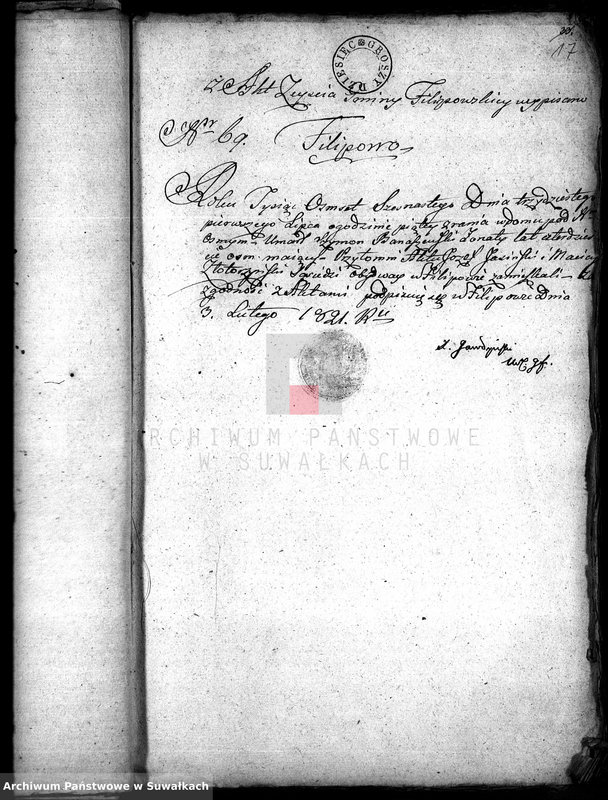 17
DZIESIĘC GROSZY
z Akt Zeyścia Gminy Filipowskiey wypisano
Nr 69. Filipowo
Roku Tysiąc Osmset Szesnastego Dnia trzydziestego
pierwszego Lipca o godzinie piątey zrana w domu pod Nr
osmym Umarł Szymon Żonaty lat czterdzieści
osm maiący. Przytomni Aktu Józef Jasiński i Maciey
Sąsiedzi Obydway w Filipowie zamięszkali
zgodność z Aktami podpisuię się w Filipowie Dnia
3. Lutego 1821. Ru
ARCHIWUM PAŃSTWOWE
W SUWAŁKACH
Archiwum Państwowe w Suwałkach